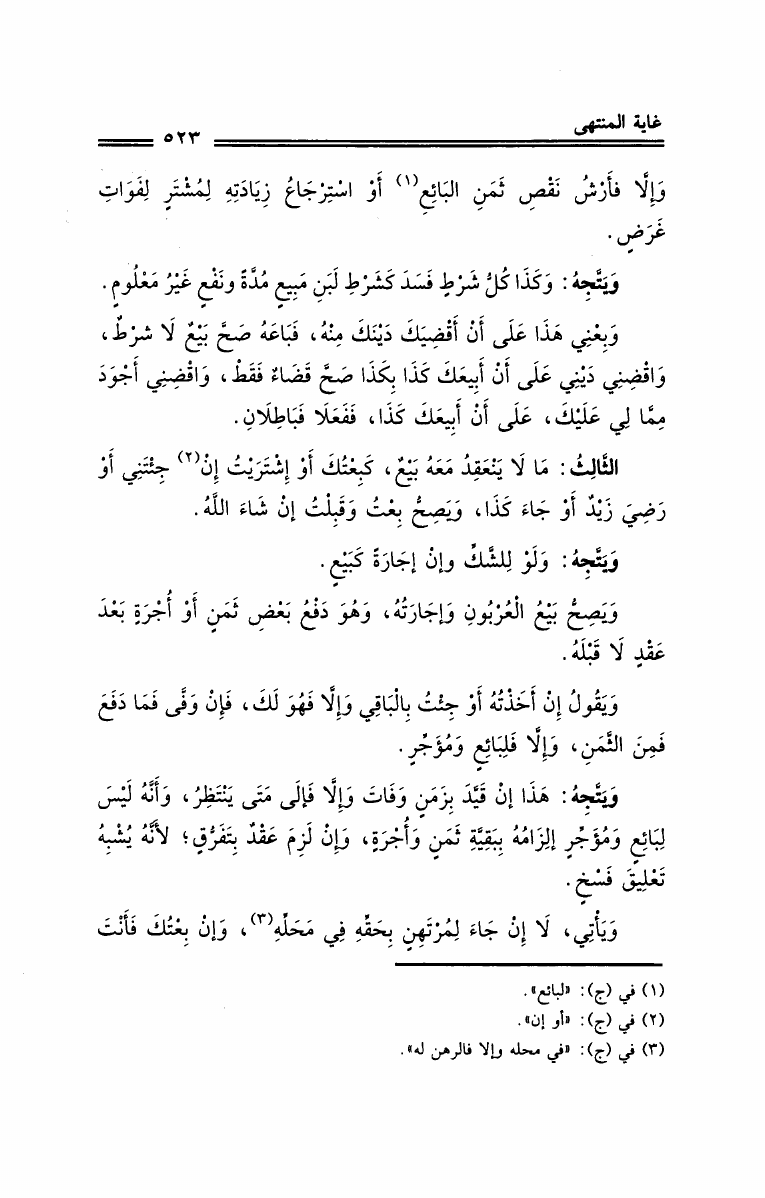 غاية المنتهى
٥٢٣
وَإِلَّا فأَرْشُ نَقْصِ ثَمَنِ البَائِعِ(١) أَوْ اسْتِرْجَاعُ زِيَادَتِهِ لِمُشْتَرٍ لِفَوَاتِ
غَرَضٍ.
وَيَتَّجِهُ: وَكَذَا كُلُّ شَرْطٍ فَسَدَ كَشَرْطِ لَبَنِ مَبِيعٍ مُدَّةً ونَفْعٍ غَيْرُ مَعْلُومٍ.
وَبِعْنِي هَذَا عَلَى أَنْ أَقْضِيَكَ دَيْنَكَ مِنْهُ، فَبَاعَهُ صَحَّ بَيْعٌ لَا شرْطٌ،
وَاقْضِنِي دَيْنِي عَلَى أَنْ أَبِيعَكَ كَذَا بِكَذَا صَحَّ قَضَاءٌ فَقَطْ، وَاقْضِنِي أَجْوَدَ
مِمَّا لِي عَلَيْكَ، عَلَى أَنْ أَبِيعَكَ كَذَا، فَفَعَلَا فَبَاطِلَانِ.
الثَّالِثُ: مَا لَا يَنْعَقِدُ مَعَهُ بَيْعٌ، كَبِعْتُكَ أَوْ إِشْتَرَيْتُ إِنْ(٢) جِئْتَنِي أَوْ
رَضِيَ زَيْدٌ أَوْ جَاءَ كَذَا، وَيَصِحُّ بِعْتُ وَقَبِلْتُ إنْ شَاءَ اللَّهُ.
وَيَتَّجِهُ: وَلَوْ لِلشَّكِّ وإنْ إجَارَةً كَبَيْعٍ.
وَيَصِحُّ بَيْعُ الْعُرْبُونِ وَإجَارَتُهُ، وَهُوَ دَفْعُ بَعْضِ ثَمَنٍ أَوْ أُجْرَةٍ بَعْدَ
عَقْدٍ لَا قَبْلَهُ.
وَيَقُولُ إِنْ أَخَذْتُهُ أَوْ جِئْتُ بِالْبَاقِي وَإِلَّا فَهُوَ لَكَ، فَإِنْ وَفَّى فَمَا دَفَعَ
فَمِنَ الثَّمَنِ، وَإِلَّا فَلِبَائِعٍ وَمُؤَجِّرٍ.
وَيَتَّجِهُ: هَذَا إنْ قَيَّدَ بِزَمَنٍ وَفَاتَ وَإلَّا فَإلَى مَتَى يَنْتَظِرُ، وَأَنَّهُ لَيْسَ
لِبَائِعٍ وَمُؤَجِّرٍ إلزَامُهُ بِبَقِيَّةِ ثَمَنٍ وَأُجْرَةٍ، وَإنْ لَزِمَ عَقْدٌ بِتَفَرُّقٍ؛ لأنَّهُ يُشْبِهُ
تَعْلِيقَ فَسْخٍ.
وَيَأْتِي، لَا إِنْ جَاءَ لِمُرْتَهِنٍ بِحَقِّهِ فِي مَحَلِّهِ(٣)، وَإنْ بِعْتُكَ فَأَنْتَ
(١) في (ج): «لبائع».
(٢) في (ج): «أو إن».
(٣) في (ج): «في محله وإلا فالرهن له».